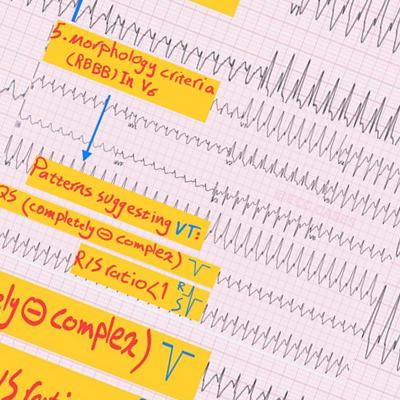 5. morphology criteria
(RBBB) In V6
Patterns suggesting VT:
QS (completely ⊖ complex)
R/S ratio<1 R
S
ely ⊖ complex)